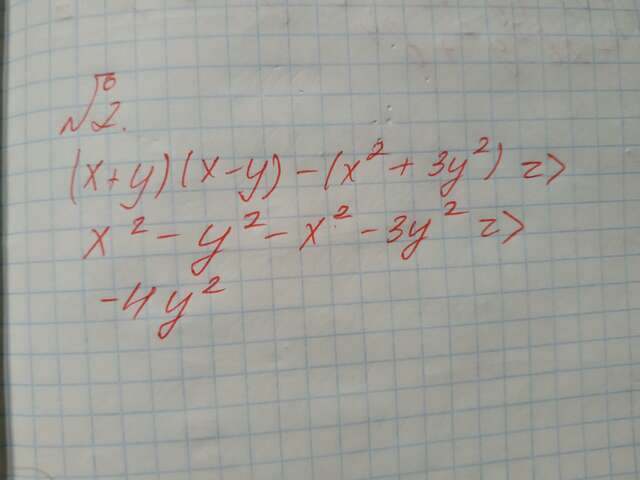 №2.
(x+y)(x-y)-(x²+3y²) =>
x²-y²-x²-3y² =>
-4y²